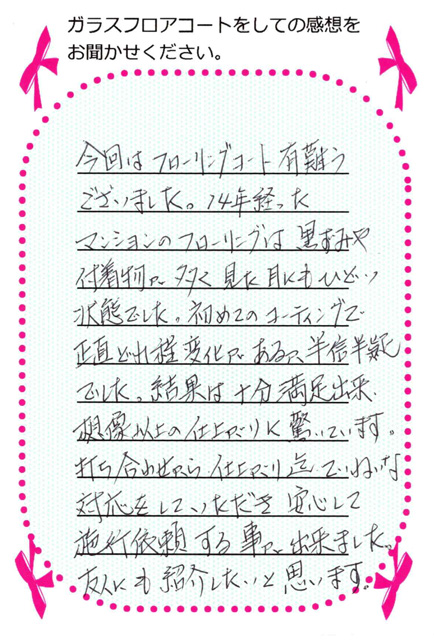 ガラスフロアコートをしての感想を
お聞かせください。
今回はフローリングコート有難う
ございました。14年経った
マンションのフローリングは黒ずみや
付着物が多く見た目にもひどい
状態でした。初めてのコーティングで
正直どれ程変化があるか半信半疑
でした。結果は十分満足出来、
想像以上の仕上がりに驚いています。
打ち合わせから仕上がり迄ていねいな
対応をしていただき安心して
施行依頼する事が出来ました。
友人にも紹介したいと思います。